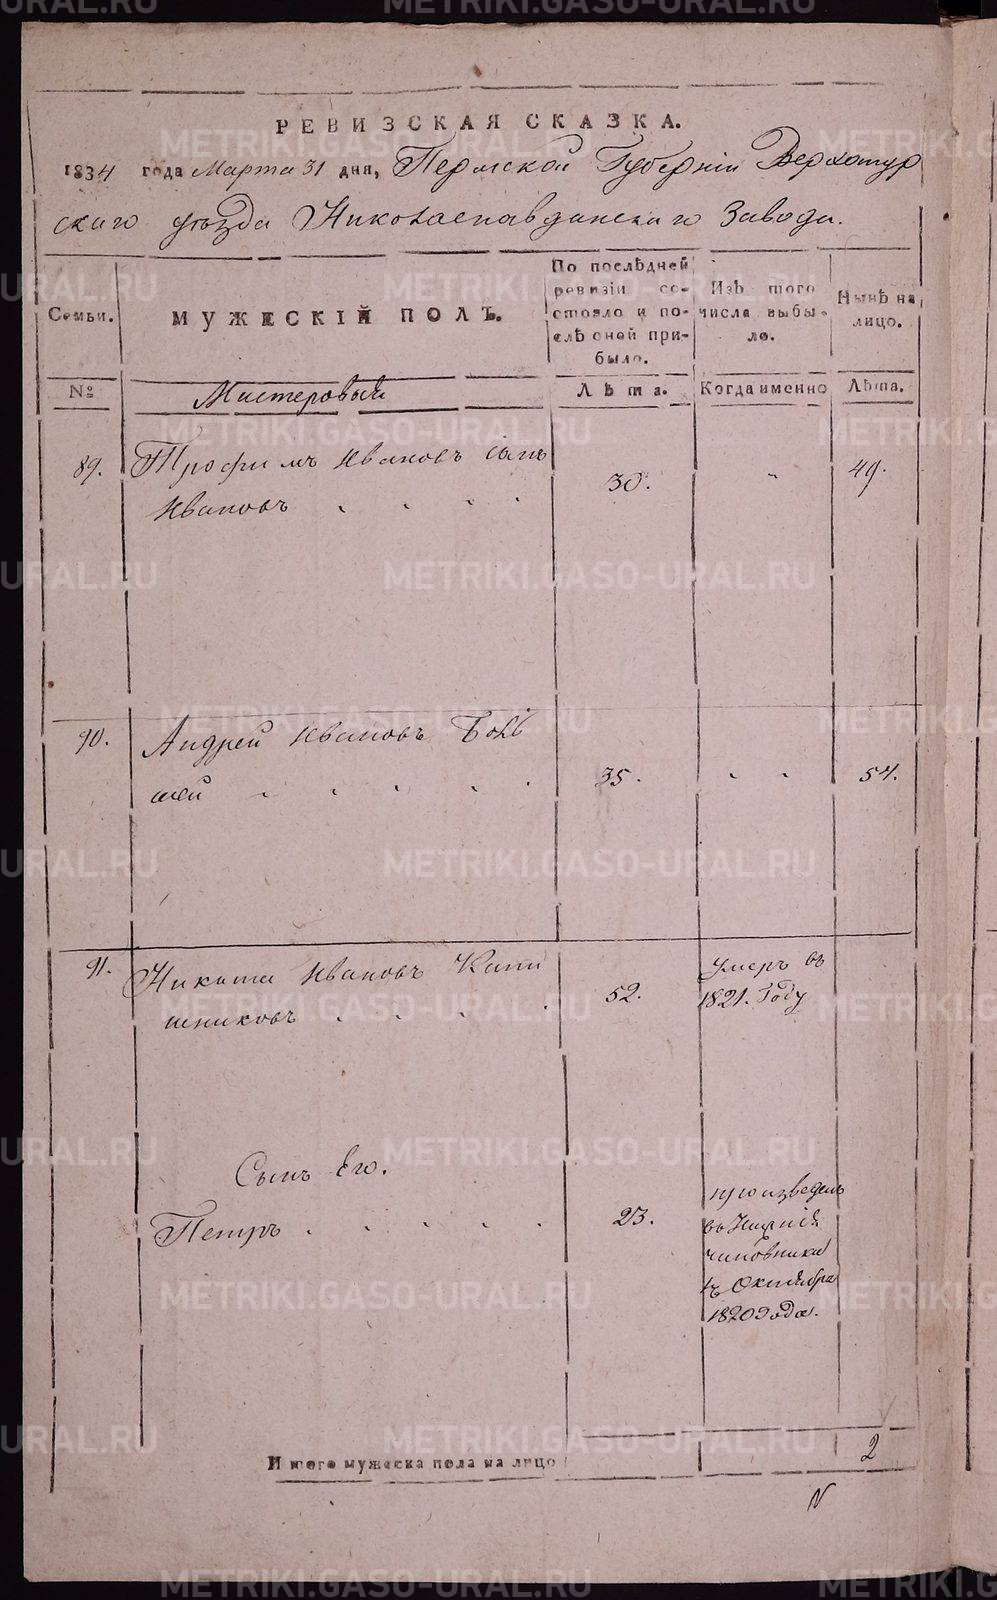 РЕВИЗСКАЯ СКАЗКА.
1834 года Марта 31 дня, Пермской Губерніи Верхотур
скаго уѣзда Николаепавдинскаго Завода.
Семьи.
МУЖЕСКІЙ ПОЛЪ.
По послѣдней
ревизіи со-
стояло и по-
слѣ оней при-
было.
Изъ того
числа выбы-
ло.
Нынѣ на
лицо.
№
Мастеровыя
Лѣта.
Когда именно
Лѣта.
89.
Трофимъ Ивановъ сынъ
Ивановъ
30.
49.
90.
Андрей Ивановъ Боль
шей
35.
54.
91.
Никита Ивановъ
шниковъ
52.
Умеръ въ
1821. Году
Сынъ Его.
Петръ
23.
произведенъ
въ
чиновники
съ Октября
1820 года.
Итого мужеска пола на лицо
2
N
METRIKI.GASO-URAL.RU